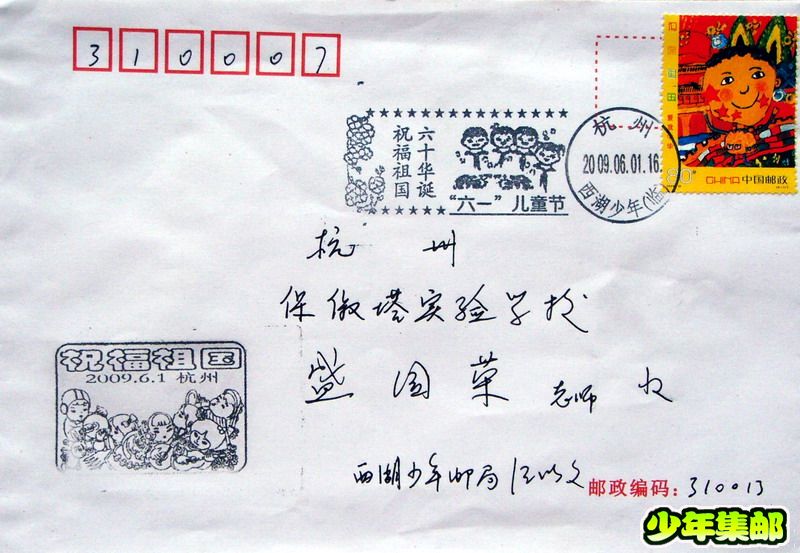 310007
祝福祖国
六十华诞
“六一”儿童节
杭州
2009.06.01.16
西湖少年(临)
80分
CHINA 中国邮政
杭 州
保俶塔实验学校
盛国荣 老师 收
祝福祖国
2009.6.1 杭州
西湖少年邮局
邮政编码：310013
少年集邮